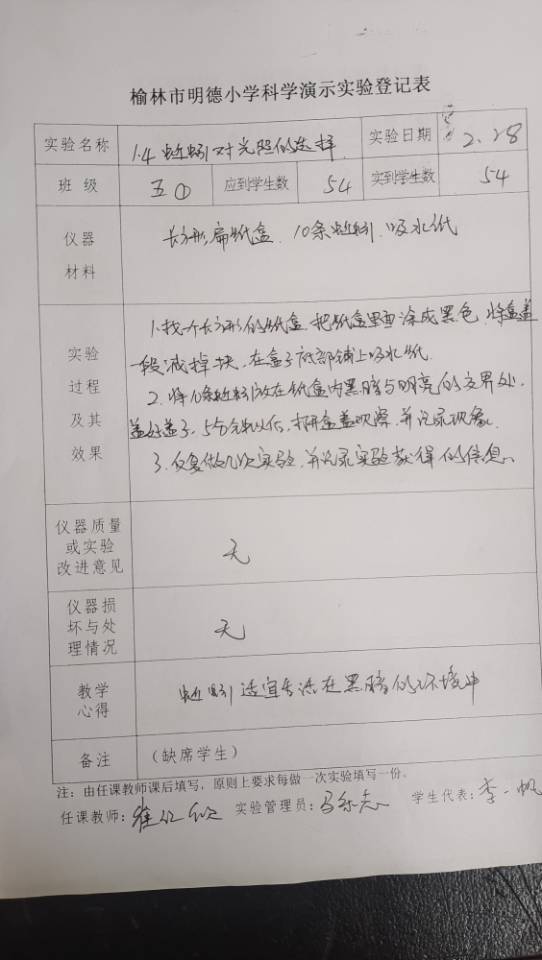 榆林市明德小学科学演示实验登记表
实验名称 1.4 蚯蚓对光照的选择 实验日期 2.28
班 级 五① 应到学生数 54 实到学生数 54
仪器
材料
长方形扁纸盒、10条蚯蚓、吸水纸
实验
过程
及其
效果
1.找一个长方形的纸盒,把纸盒里面涂成黑色,将盒盖
一段减掉块,在盒子底部铺上吸水纸.
2.将10条蚯蚓放在纸盒内黑暗与明亮的交界处,
盖好盖子,5分钟以后,打开盒盖观察,并记录现象.
3.反复做几次实验,并记录实验获得的信息.
仪器质量
或实验
改进意见
无
仪器损
坏与处
理情况
无
教学
心得
蚯蚓适宜生活在黑暗的环境中
备注 (缺席学生)
注:由任课教师课后填写,原则上要求每做一次实验填写一份。
任课教师: 实验管理员: 学生代表:李一帆